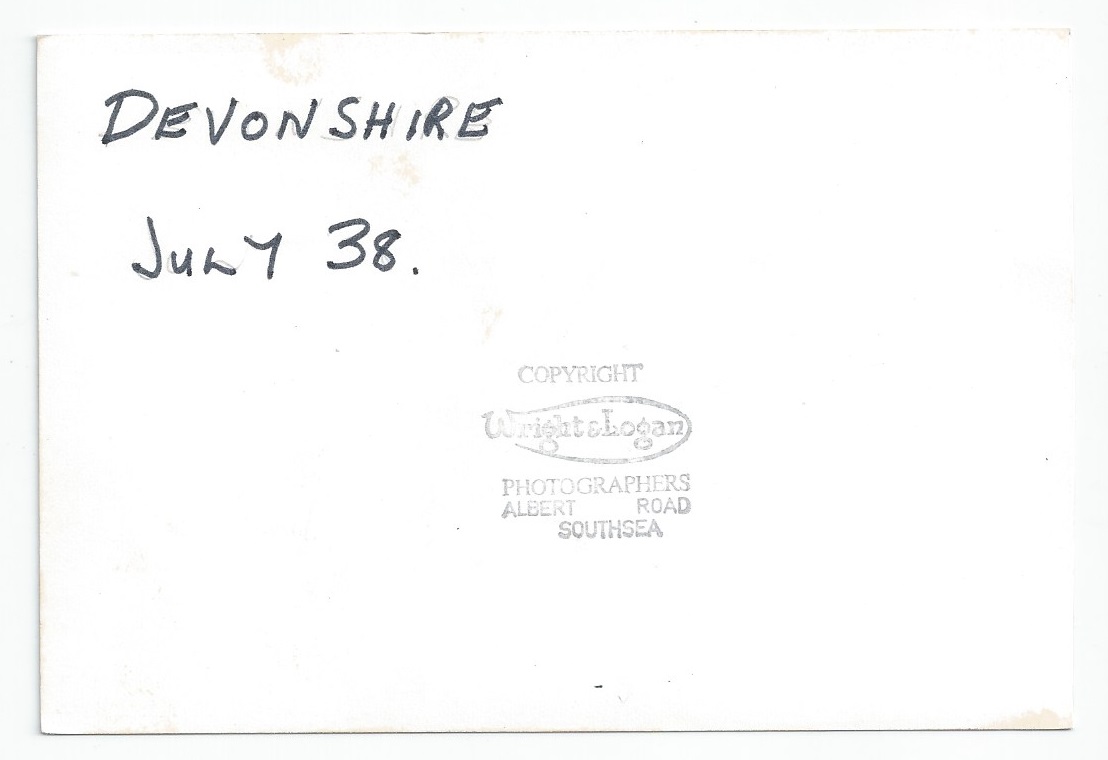 DEVONSHIRE
JULY 38.
COPYRIGHT
Wright & Logan
PHOTOGRAPHERS
ALBERT ROAD
SOUTHSEA